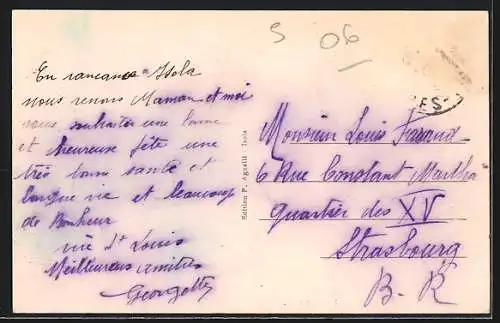 S 06
En vacances Isola
nous venons Maman et moi
vous souhaiter une bonne
et heureuse fête une
très bonne santé et
longue vie et beaucoup
de Bonheur
vive St Louis
Meilleures amitiés
Georgette
Edition P. Agnelli - Isola
Monsieur Louis
6 Rue Constant Martha
quartier des XV
Strasbourg
B-R